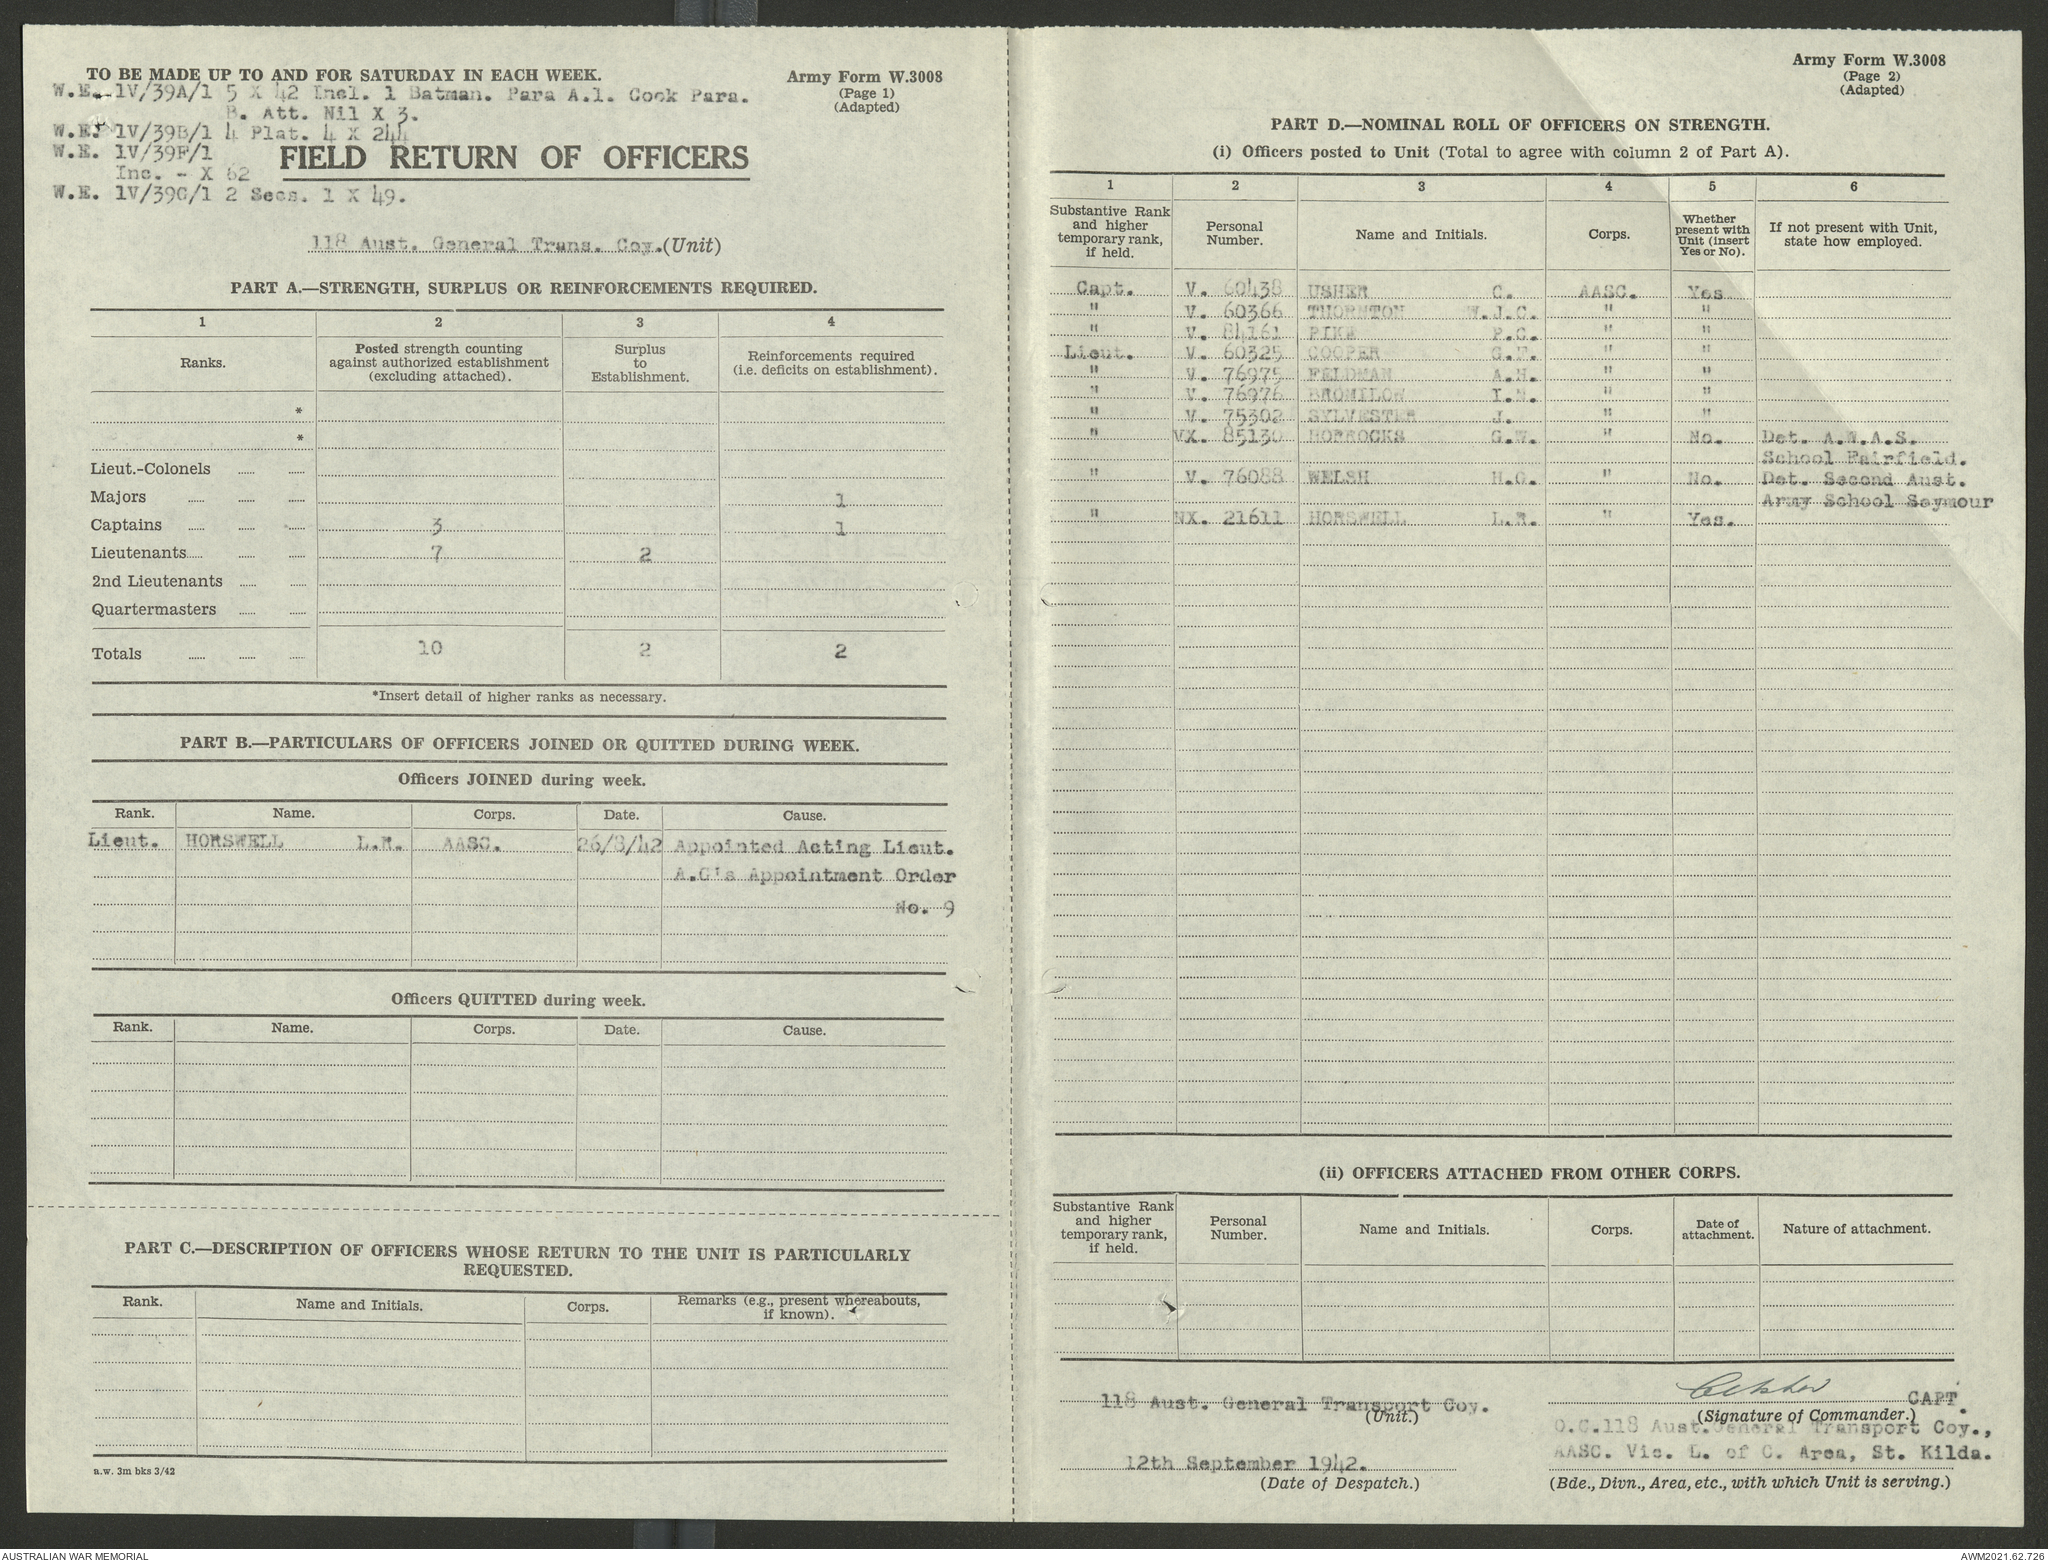 TO BE MADE UP TO AND FOR SATURDAY IN EACH WEEK.
Army Form W.3008
(Page 1)
(Adapted)
W.E. 1V/39A/1 5 X 42 Incl. 1 Batman. Para A.1. Cook Para.
B. Att. Nil X 3.
W.E. 1V/39B/1 4 Plat. 4 X 244
W.E. 1V/39F/1
Inc. - X 62
W.E. 1V/39G/1 2 Secs. 1 X 49.
FIELD RETURN OF OFFICERS
118 Aust. General Trans. Coy. (Unit)
PART A.—STRENGTH, SURPLUS OR REINFORCEMENTS REQUIRED.
1 2 3 4
Ranks. Posted strength counting against authorized establishment (excluding attached). Surplus to Establishment. Reinforcements required (i.e. deficits on establishment).
*
*
Lieut.-Colonels
Majors 1
Captains 3 1
Lieutenants 7 2
2nd Lieutenants
Quartermasters
Totals 10 2 2
*Insert detail of higher ranks as necessary.
PART B.—PARTICULARS OF OFFICERS JOINED OR QUITTED DURING WEEK.
Officers JOINED during week.
Rank. Name. Corps. Date. Cause.
Lieut. HORSWELL L.R. AASC. 26/8/42 Appointed Acting Lieut.
A.G's Appointment Order
No. 9
Officers QUITTED during week.
Rank. Name. Corps. Date. Cause.
PART C.—DESCRIPTION OF OFFICERS WHOSE RETURN TO THE UNIT IS PARTICULARLY
REQUESTED.
Rank. Name and Initials. Corps. Remarks (e.g., present whereabouts, if known).
a.w. 3m bks 3/42
Army Form W.3008
(Page 2)
(Adapted)
PART D.—NOMINAL ROLL OF OFFICERS ON STRENGTH.
(i) Officers posted to Unit (Total to agree with column 2 of Part A).
1 2 3 4 5 6
Substantive Rank and higher temporary rank, if held. Personal Number. Name and Initials. Corps. Whether present with Unit (insert Yes or No). If not present with Unit, state how employed.
Capt. V. 60438 USHER C. AASC. Yes
" V. 60366 THORNTON W.J.C. " "
" V. 84161 PIKE P.C. " "
Lieut. V. 60325 COOPER " "
" V. 76975 FELDMAN A.H. " "
" V. 76976 BROMILOW " "
" V. 75302 SYLVESTER J. " "
" VX. 85130 HORROCKS G.W. " No. Det. A.W.A.S.
School Fairfield.
" V. 76088 WELSH H.G. " No. Det. Second Aust.
Army School Seymour
" NX. 21611 HORSWELL L.R. " Yes.
(ii) OFFICERS ATTACHED FROM OTHER CORPS.
Substantive Rank and higher temporary rank, if held. Personal Number. Name and Initials. Corps. Date of attachment. Nature of attachment.
118 Aust. General Transport Coy.
(Unit.)
12th September 1942.
(Date of Despatch.)
CUsher CAPT.
(Signature of Commander.)
O.C.118 Aust.General Transport Coy.,
AASC. Vic. L. of C. Area, St. Kilda.
(Bde., Divn., Area, etc., with which Unit is serving.)
AUSTRALIAN WAR MEMORIAL
AWM2021.62.726